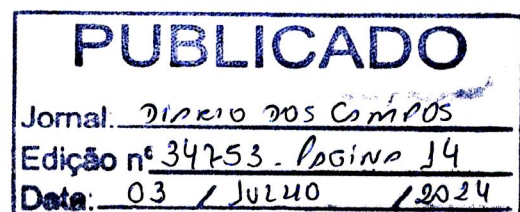 PUBLICADO
Jornal: DIARIO DOS CAMPOS
Edição nº 34753. PAGINA 14
Data: 03 / JULHO / 2024